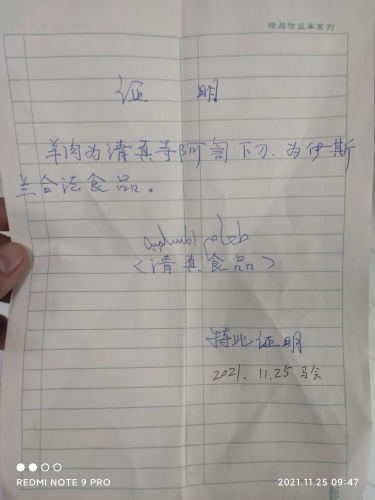 精品作业本系列
证 明
羊肉为清真寺阿訇下刀.为伊斯
兰合法食品。
<清真食品>
特此证明
2021. 11.25
REDMI NOTE 9 PRO
2021.11.25 09:47